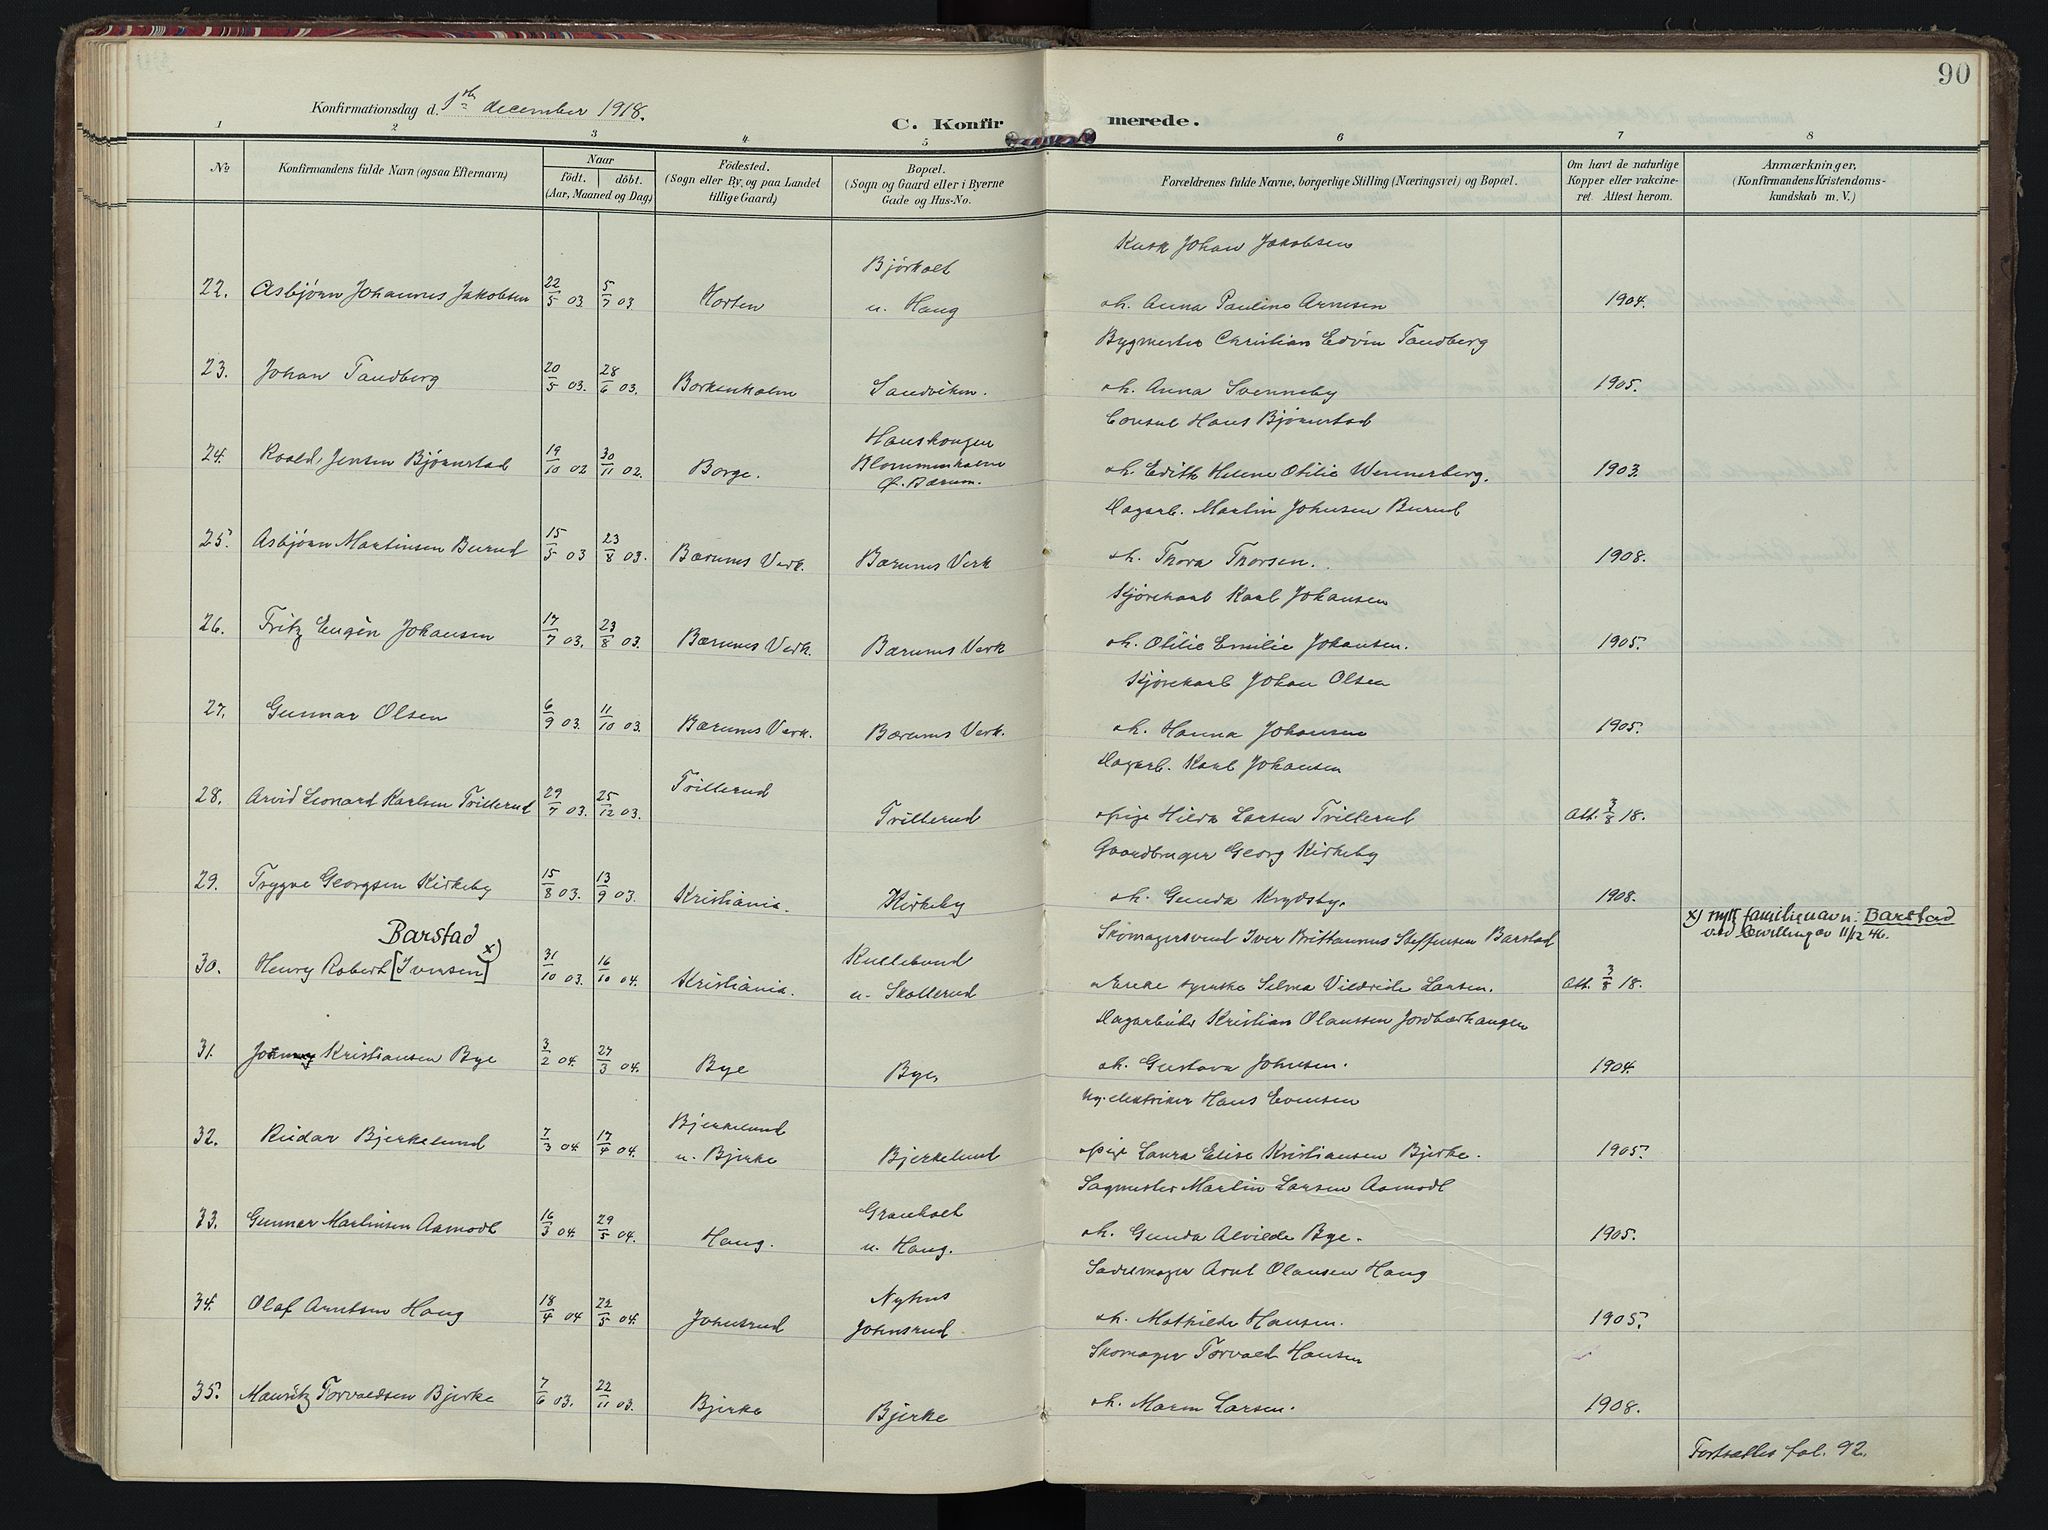 90
Konfirmationsdag d. 1ste december 1918.
C. Konfirmerede.
1 2 3 4 5 6 7 8
No
Konfirmandens fulde Navn (ogsaa Efternavn)
Naar
födt. döbt.
(Aar, Maaned og Dag)
Födested.
(Sogn eller By, og paa Landet
tillige Gaard)
Bopæl.
(Sogn og Gaard eller i Byerne
Gade og Hus-No.
Forældrenes fulde Navne, borgerlige Stilling (Næringsvei) og Bopæl.
Om havt de naturlige
Kopper eller vakcine-
ret. Attest herom.
Anmærkninger.
(Konfirmandens Kristendoms-
kundskab m. V.)
Kusk Johan Jakobsen
Bjørkolt
22. Asbjørn Johannes Jakobsen 22/5 03 5/7 03. Horten u. Haug oh. Anna Pauline Arnesen 1904.
Bygmester Christian Edvin Tandberg
23. Johan Tandberg 20/5 03. 28/6 03. Borkenholm Sandviken. oh. Anna Svenneby 1905.
Consul Hans Bjørnstad
Haushougen
24. Roald Jensen Bjørnstad 19/10 02 30/11 02. Borge. Blommenholm oh. Edith Helene Otilie Wennerberg. 1903.
Ø. Bærum.
Dagarb. Martin Johnsen Burud
25. Asbjørn Martinsen Burud 15/5 03 23/8 03. Bærums Verk. Bærums Verk oh. Thora Thorsen. 1908.
Kjørekarl Karl Johansen
26. Fritz Eugén Johansen 17/7 03. 23/8 03. Bærums Verk. Bærums Verk oh. Otilie Emilie Johansen. 1905.
Kjørekarl Johan Olsen
27. Gunnar Olsen 6/9 03. 11/10 03. Bærums Verk. Bærums Verk. oh. Hanna Johansen 1905.
Dagarb. Karl Johansen
Trillerud
28. Arvid Leonard Karlsen Trillerud 29/7 03. 25/12 03. Trillerud pige Hilda Larsen Trillerud Att. 3/8 18.
Gaardbruger Georg Kirkeby
29. Trygve Georgsen Kirkeby 15/8 03. 13/9 03. Kristiania. Kirkeby oh. Gunda Krydsby. 1908.
x) nytt familienavn: Barstad
ved bevilling av 11/12 46.
Barstad x)
Skomagersvend Iver Brittannus Steffensen Barstad
30. Henry Robert [Iversen] 31/10 03. 16/10 04. Kristiania. Kullebund
u. Skollerud Selma Vildride Larsen. Att. 3/8 18.
Dagarbeider Kristian Olaussen Jordbærhaugen
31. Johnny Kristiansen Bye 3/2 04. 27/3 04. Bye Bye, oh. Gustava Johnsen. 1904.
elektriker Hans Evensen
Bjerkelund
32. Reidar Bjerkelund 7/3 04. 17/4 04. u. Bjerke Bjerkelund pige Laura Elise Kristiansen Bjerke. 1905.
Sagmester Martin Larsen Aamodt
Granholt
33. Gunnar Martinsen Aamodt 16/3 04. 29/5 04. Haug. u. Haug. oh. Gunda Alvilde Bye. 1905.
Sadelmager Arnt Olausen Haug
Nyhus
34. Olaf Arntsen Haug 18/4 04 22/5 04. Johnsrud Johnsrud oh. Mathilde Hansen. 1905.
Skomager Torvald Hansen
35. Mauritz Torvaldsen Bjerke 7/6 03. 22/11 03. Bjerke Bjerke oh. Maren Larsen. 1908.
Fortsættes fol. 92.